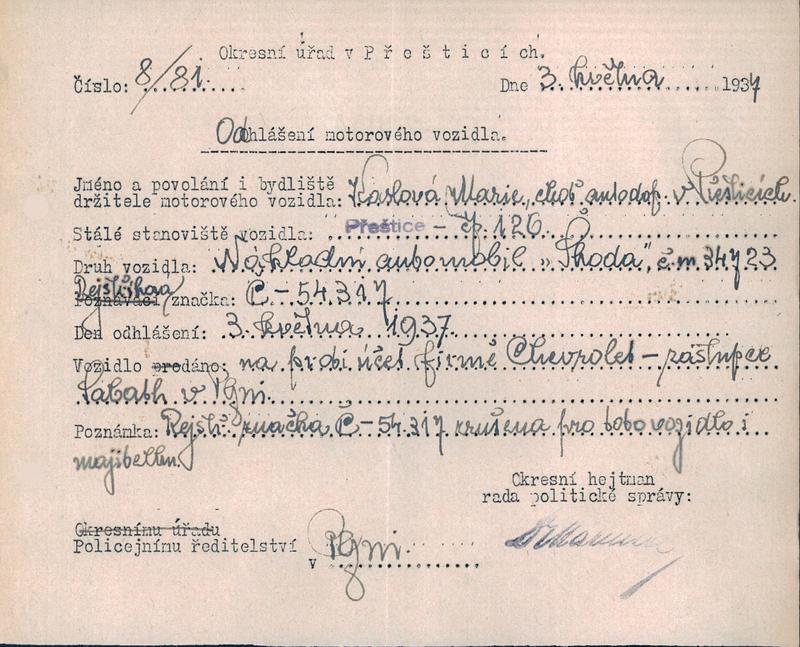 Okresní úřad v Přešticích.
Číslo: 8/81. Dne 3. května 1937
Odhlášení motorového vozidla.
Jméno a povolání i bydliště
držitele motorového vozidla: Marie, choť autodop. v Přešticích.
Stálé stanoviště vozidla: Přeštice - čp. 126.
Druh vozidla: Nákladní automobil „Škoda", č. m 34723
Rejstřková
Poznávací značka: Č - 54.317
Den odhlášení: 3. května 1937.
Vozidlo prodáno: na proti účet firmě Chevrolet - zástupce
Sabath v Plzni
Poznámka: Rejstř. značka Č - 54.317 zrušena pro toto vozidlo i
majitelku.
Okresní hejtman
rada politické správy:
Okresnímu úřadu
Policejnímu ředitelství
v Plzni.